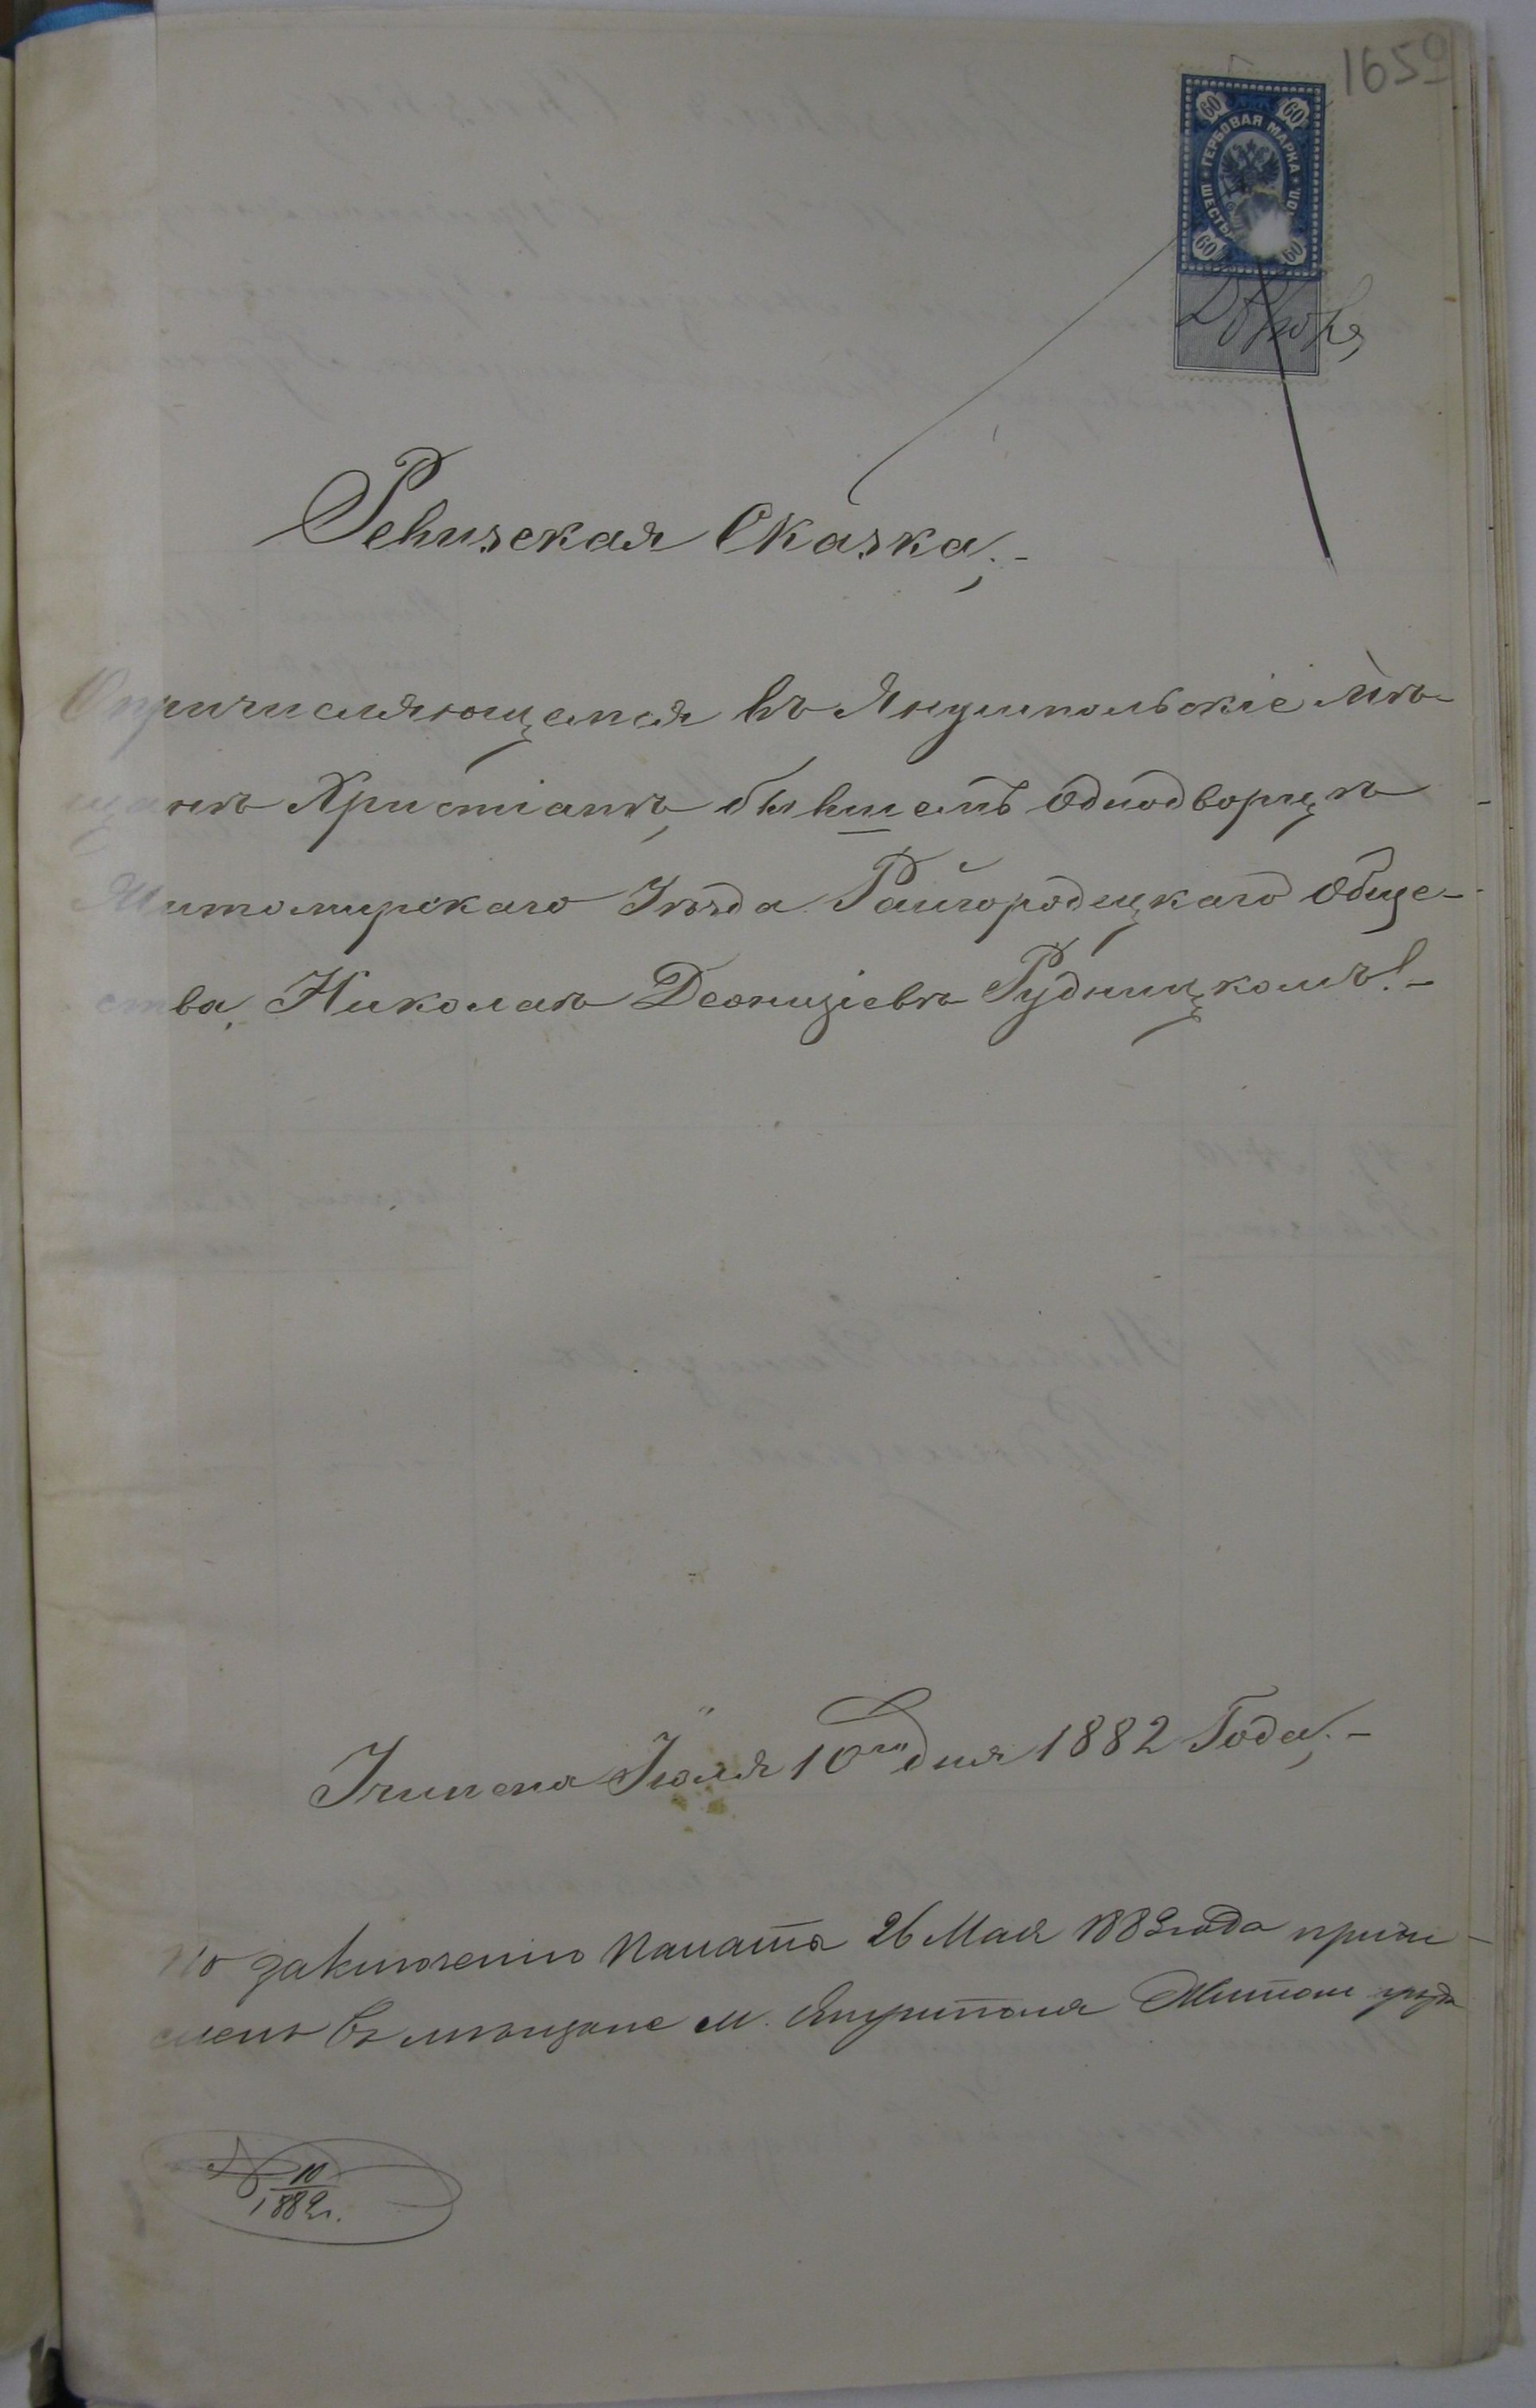 1659
60 60
ГЕРБОВАЯ МАРКА
ШЕСТЬ КОП.
60 60
Ревизская Сказка,.-
О причисляющемся въ Янушпольскіе мѣ-
щане Христіанъ, бывшемъ Однодворцѣ
Житомирскаго Уѣзда Райгородецкаго Обще-
ства, Николаѣ Деонизіевѣ Рудницкомъ!-
Учинена Іюля 10го дня 1882 Года,.-
По заключенію Палаты 26 Мая 1882 года причи-
сленъ въ мѣщане м. Янушполя Житом. уѣзда
№ 10
1882 г.